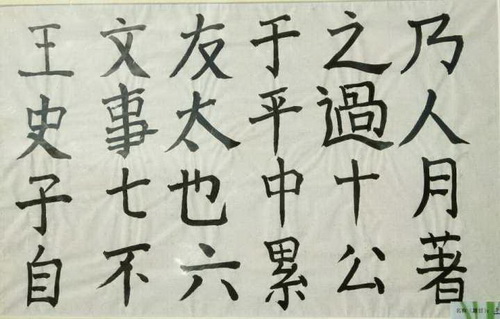 乃人月著
之過十公
于平中累
友太也六
文事七不
王史子自